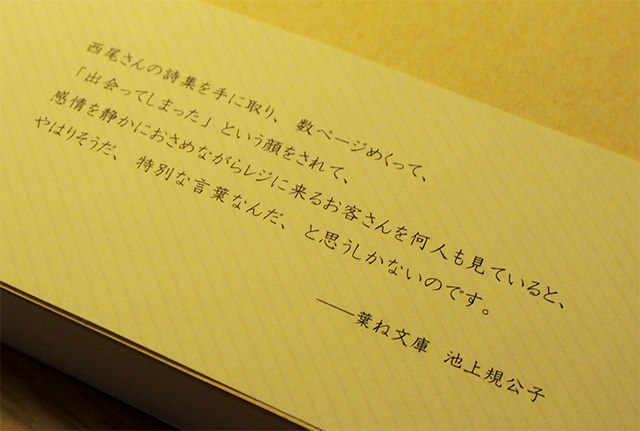 西尾さんの詩集を手に取り、数ページめくって、
「出会ってしまった」という顔をされて、
感情を静かにおさめながらレジに来るお客さんを何人も見ていると、
やはりそうだ、特別な言葉なんだ、と思うしかないのです。
――葉ね文庫 池上規公子